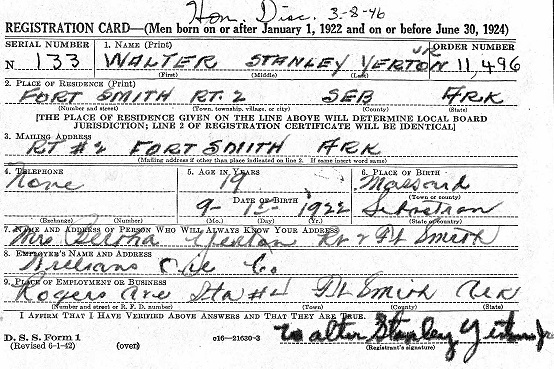 Hon. Disc. 3-8-46
REGISTRATION CARD—(Men born on or after January 1, 1922 and on or before June 30, 1924)
SERIAL NUMBER 1. NAME (Print) ORDER NUMBER
N 133 WALTER STANLEY YERTON JR N 11,496
(First) (Middle) (Last)
2. PLACE OF RESIDENCE (Print)
FORT SMITH RT. 2 SEB ARK
(Number and street) (Town, township, village, or city) (County) (State)
[THE PLACE OF RESIDENCE GIVEN ON THE LINE ABOVE WILL DETERMINE LOCAL BOARD
JURISDICTION; LINE 2 OF REGISTRATION CERTIFICATE WILL BE IDENTICAL]
3. MAILING ADDRESS
RT #2 FORT SMITH ARK
(Mailing address if other than place indicated on line 2. If same insert word same)
4. TELEPHONE 5. AGE IN YEARS 6. PLACE OF BIRTH
None 19 Massard
DATE OF BIRTH (Town or county)
9- 1922 Sebastian
(Exchange) (Number) (Mo.) (Day) (Yr.) (State or country)
7. NAME AND ADDRESS OF PERSON WHO WILL ALWAYS KNOW YOUR ADDRESS
Mrs. Bertha Yerton Rt 2 Ft Smith
8. EMPLOYER'S NAME AND ADDRESS
Oil Co
9. PLACE OF EMPLOYMENT OR BUSINESS
Rogers Ave Sta #4 Ft Smith Ark
(Number and street or R. F. D. number) (Town) (County) (State)
I AFFIRM THAT I HAVE VERIFIED ABOVE ANSWERS AND THAT THEY ARE TRUE.
D. S. S. Form 1
(Revised 6-1-42) (over) c16—21630-3 Walter Stanley Yerton Jr
(Registrant's signature)